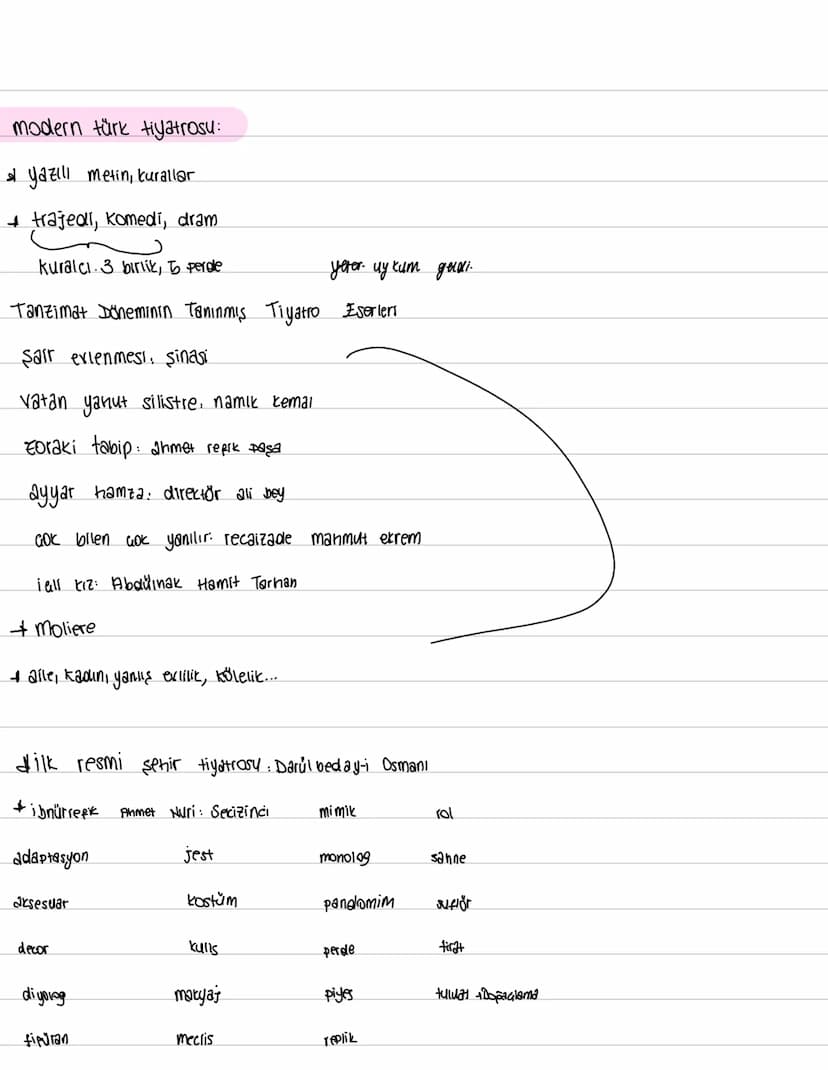 modern türk tiyatrosu:
* yazılı metin, kurallar
+ trajedi, komedi, dram
kuralcı. 3 birlik, 5 perde
Tanzimat Döneminin Tanınmış Tiyatro Eserleri
şair evlenmesi: şinasi
vatan yahut silistre: namık kemal
zoraki tabip: ahmet vefik paşa
ayyar hamza: direktör ali bey
çok bilen çok yanılır: recaizade mahmut ekrem
içli kız: Abdülhak Hamit Tarhan
+ moliere
+ aile, kadın, yanlış evlilik, kölelik...
+ ilk resmi şehir tiyatrosu: Darülbeday-i Osmani
+ ibnürrefik Ahmet Nuri: Sekizinci mimik rol
adaptasyon jest monolog sahne
aksesuar kostüm pandomim suflör
decor kulis perde tirat
diyalog makyaj piyes tuluat → Doğaçlama
figüran meclis replik